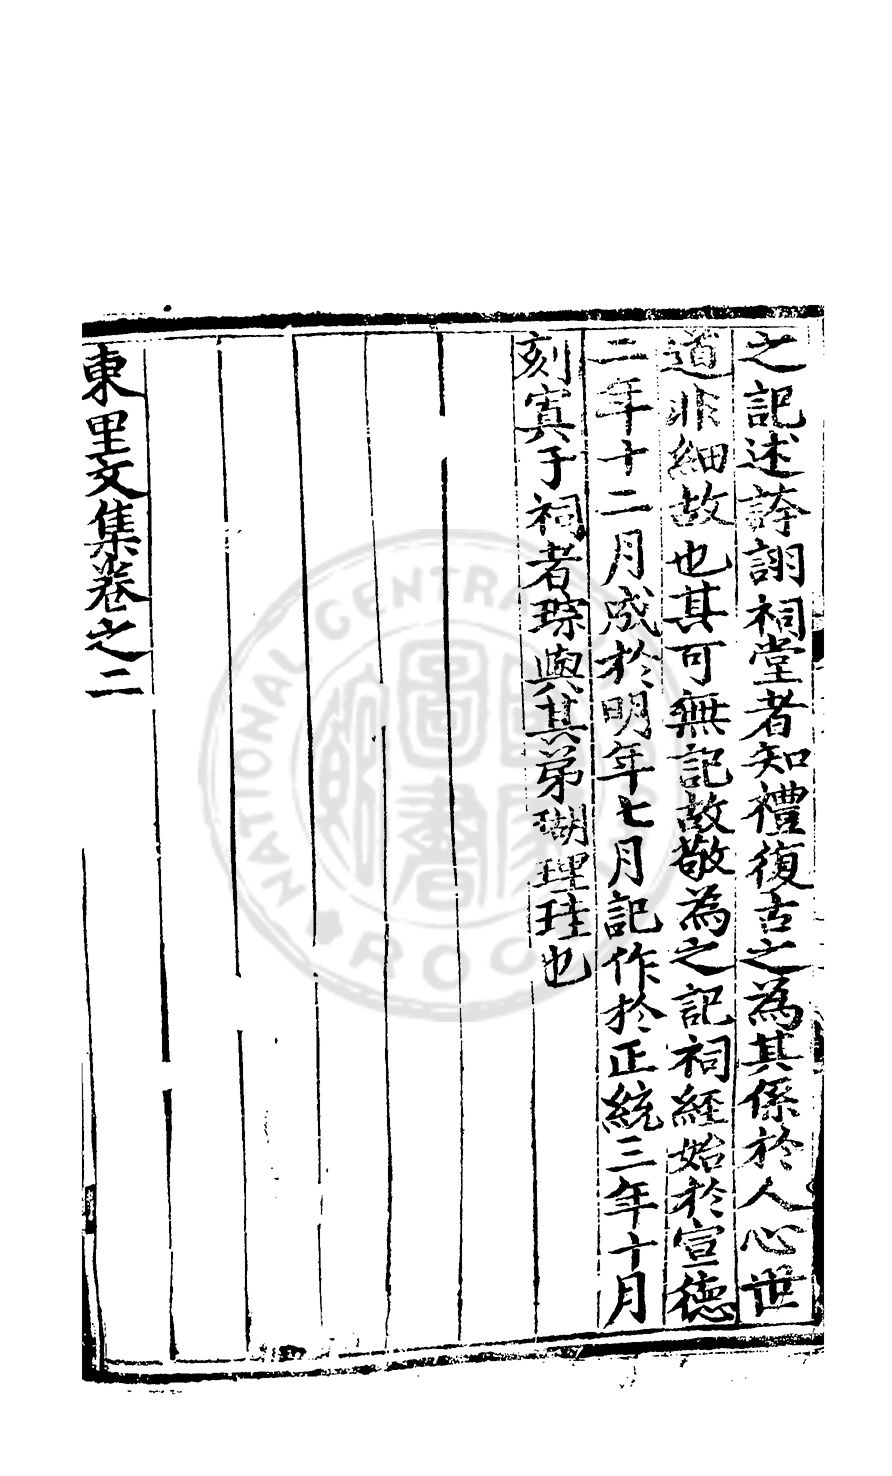 之記述誇詡祠堂者知禮復古之為其係於人心世
道非細故也其可無記故敬為之記祠經始於宣德
二年十二月成於明年七月記作於正統三年十月
刻寘于祠者琮與其弟瑚理珪也
東里文集卷之二
NATIONAL CENTRA
ROC
圖
書